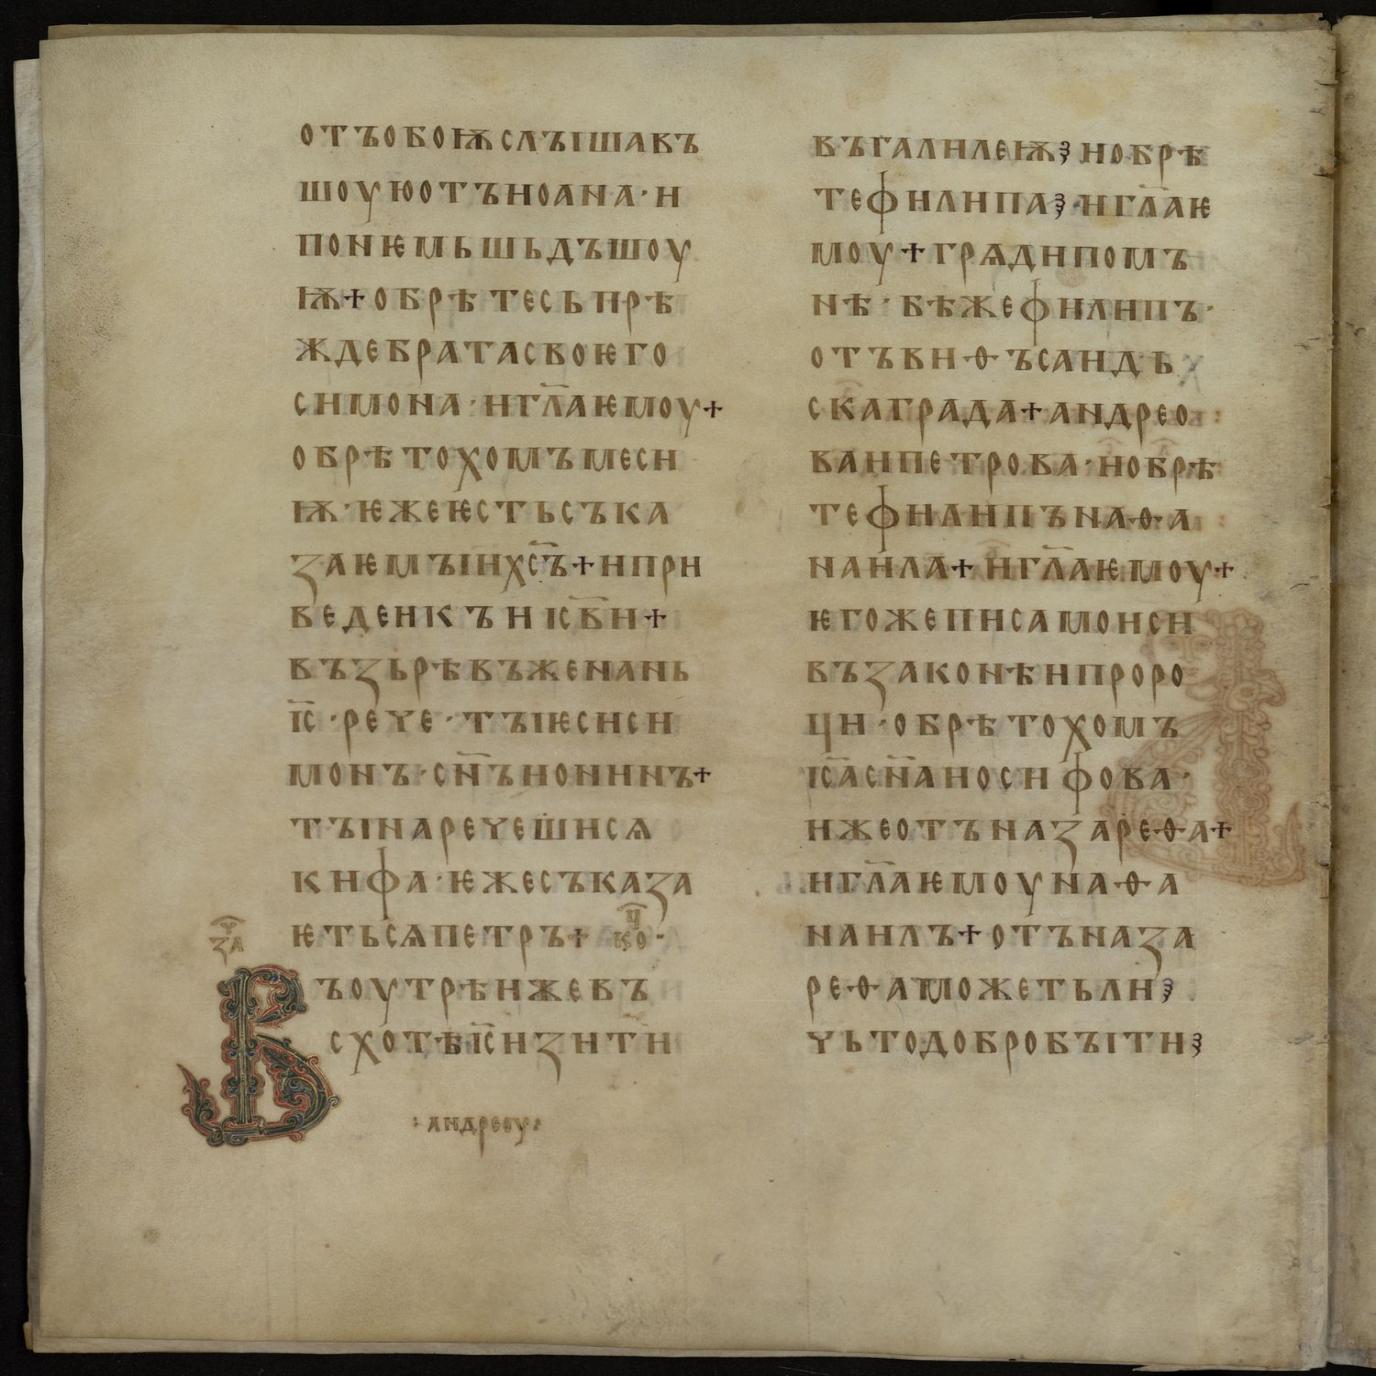 отъобоѭслꙑшавъ
шоуюотъиоана·и
поньмьшьдъшоу
ѭ+обрѣтесьпрѣ
ждебратасвоѥго
симона·игл҃аѥмоу+
обрѣтохомъмеси
ѭ·ѥжеѥстьсъка
заѥмꙑихс҃ъ+ипри
ведеикъиıс҃ви+
възьрѣвъженань
ıс҃·рече·тꙑѥсиси
монъ·сн҃ъионинъ+
тꙑнаречешися
кифа·ѥжесъказа
ѥтьсѧпетръ+
за
Въоутрѣижевъ
схотѣıс҃изити
·андреоу·
въгалилеѭ·иобрѣ
тефилипа·игл҃аѥ
моу+грѧдипомъ
нѣ·бѣжефилипъ·
отъвиѳъсандѣ
скаграда+андрео
ваипетрова·иобрѣ
тефилипънаѳа
наила+игл҃аѥмоу+
ѥгожеписамоиси
възаконѣипроро
ци·обрѣтохомъ
ıс҃асн҃аиосифова·
ижеотъназареѳа+
игл҃аѥмоунаѳа
наилъ+отъназа
реѳаможетьли·
чьтодобробꙑти·